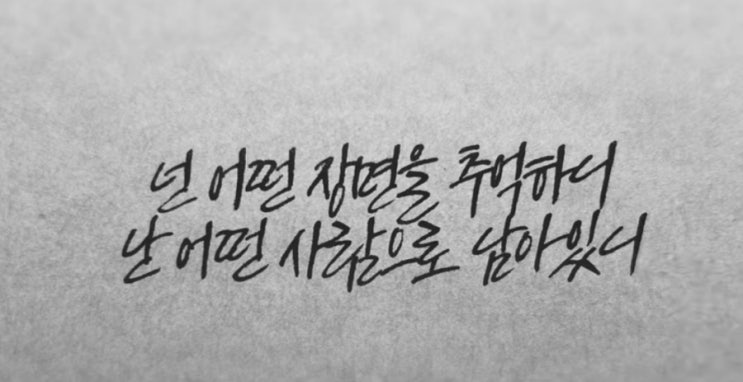 넌 어떤 장면을 추억하니
난 어떤 사람으로 남아있니